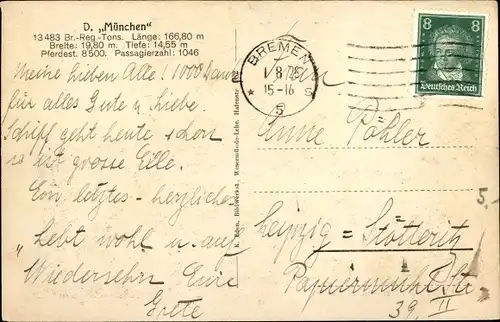 D. „München“
13 483 Br.-Reg.-Tons. Länge: 166,80 m
Breite: 19,80 m. Tiefe: 14,55 m
Pferdest. 8500. Passagierzahl: 1046
Meine lieben Alle! 1000 Dank
für alles Gute u. Liebe.
Schiff geht heute schon
so ist grosse Eile.
Ein letztes - herzliches
„Lebt wohl u. auf
Wiedersehn Eure
Grete
BREMEN
1 8 15-16
* 5 S
8 8
Deutsches Reich
Frau
Anne Pöhler
Leipzig = Stötteritz
Papiermühlstr.
39 II
5.-